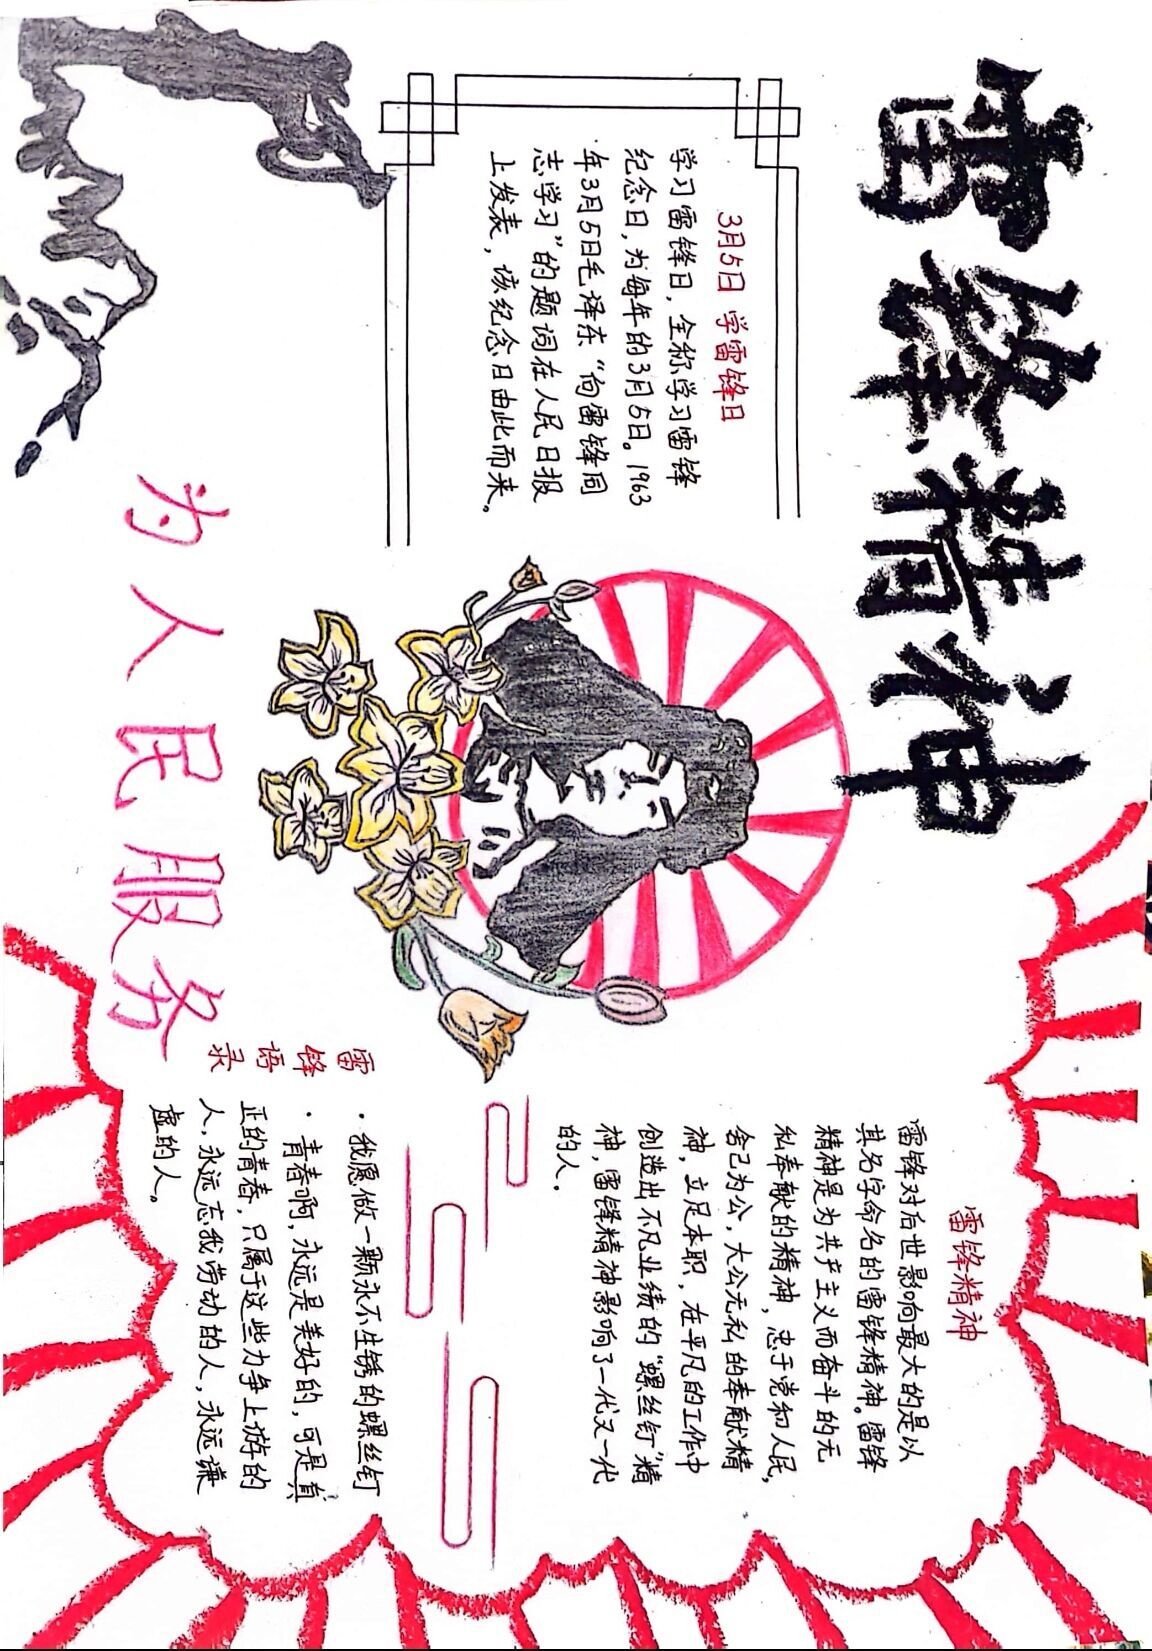 雷锋精神
3月5日 学雷锋日
学习雷锋日，全称学习雷锋
纪念日，为每年的3月5日。1963
年3月5日毛泽东“向雷锋同
志学习”的题词在人民日报
上发表，该纪念日由此而来。
为人民服务
雷锋精神
雷锋对后世影响最大的是以
其名字命名的雷锋精神。雷锋
精神是为共产主义而奋斗的无
私奉献的精神，忠于党和人民，
舍己为公，大公无私的奉献精
神，立足本职，在平凡的工作中
创造出不凡业绩的“螺丝钉”精
神，雷锋精神影响了一代又一代
的人。
雷锋语录
·我愿做一颗永不生锈的螺丝钉
·青春啊，永远是美好的，可是真
正的青春，只属于这些力争上游的
人，永远忘我劳动的人，永远谦
虚的人。